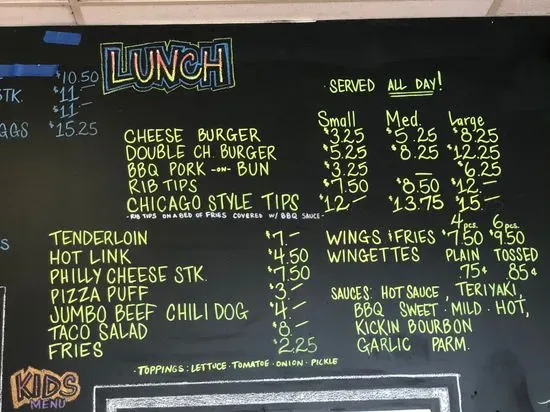 LUNCH
· SERVED ALL DAY!
$10.50
STK. $11.—
$11.—
GGS $15.25
Small Med. Large
CHEESE BURGER $3.25 $5.25 $8.25
DOUBLE CH. BURGER $5.25 $8.25 $12.25
BBQ PORK -ON- BUN $3.25 — $6.25
RIB TIPS $7.50 $8.50 $12.—
CHICAGO STYLE TIPS $12.— $13.75 $15.—
- RIB TIPS ON A BED OF FRIES COVERED W/ BBQ SAUCE -
TENDERLOIN $7.—
HOT LINK $4.50
PHILLY CHEESE STK. $7.50
PIZZA PUFF $3.—
JUMBO BEEF CHILI DOG $4.—
TACO SALAD $8.—
FRIES $2.25
4 pcs. 6 pcs.
WINGS & FRIES $7.50 $9.50
WINGETTES PLAIN TOSSED
.75¢ .85¢
SAUCES: HOT SAUCE, TERIYAKI,
BBQ SWEET · MILD · HOT,
KICKIN BOURBON
GARLIC PARM.
· TOPPINGS: LETTUCE · TOMATOE · ONION · PICKLE
KIDS
MENU